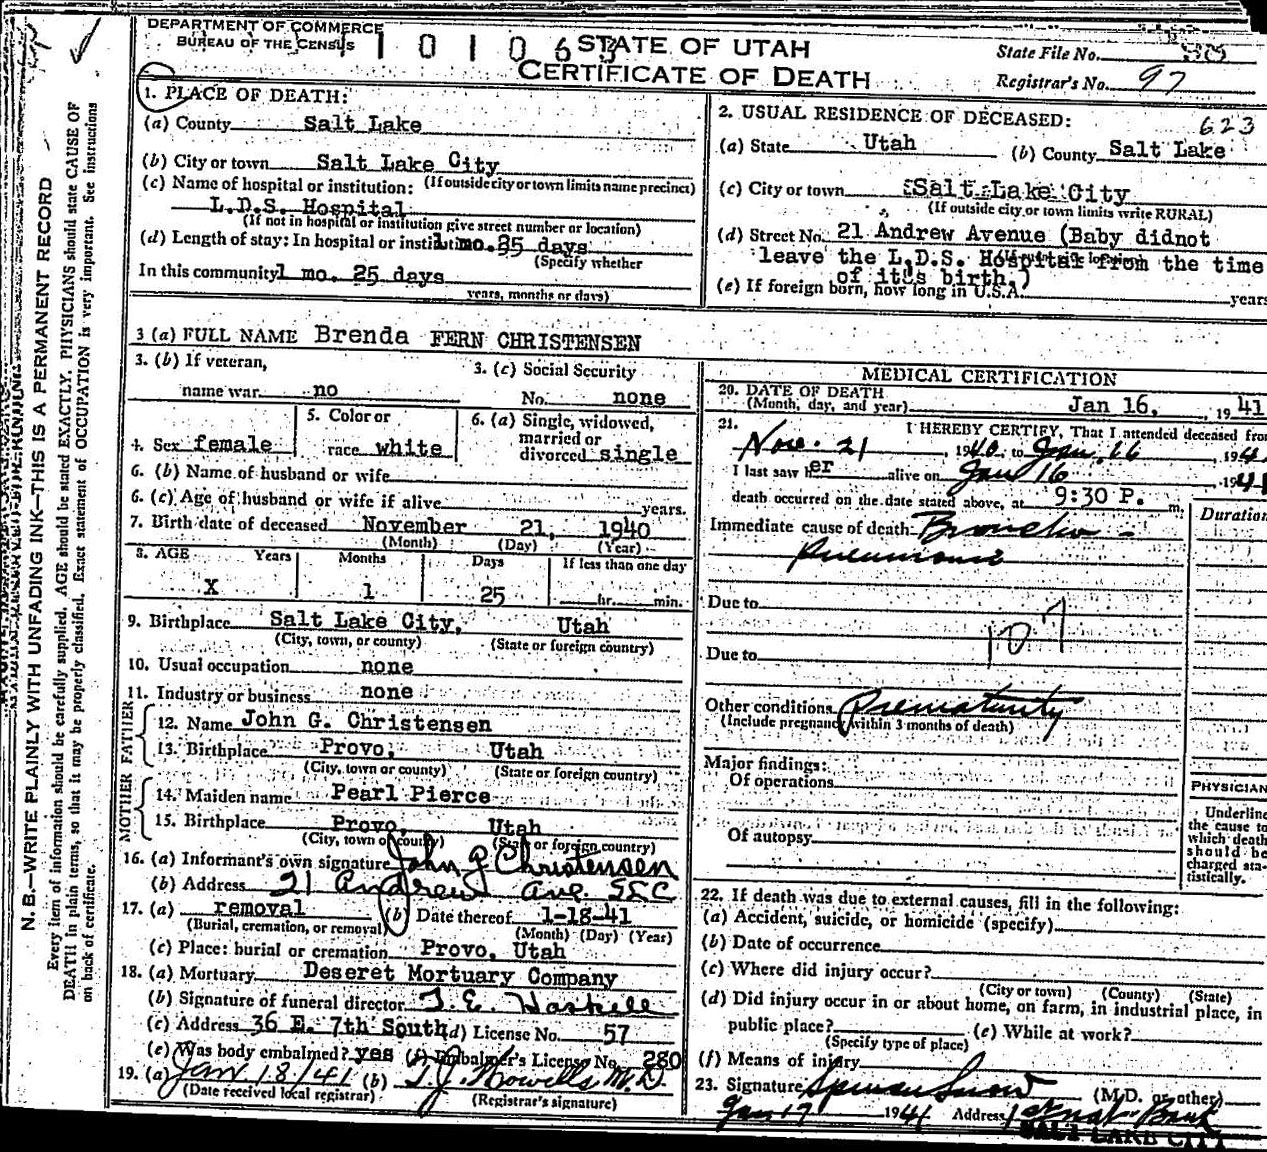 DEPARTMENT OF COMMERCE
BUREAU OF THE CENSUS
STATE OF UTAH
CERTIFICATE OF DEATH
State File No.
Registrar's No. 97
N. B.—WRITE PLAINLY WITH UNFADING INK—THIS IS A PERMANENT RECORD
Every item of information should be carefully supplied. AGE should be stated EXACTLY. PHYSICIANS should state CAUSE OF
DEATH in plain terms, so that it may be properly classified. Exact statement of OCCUPATION is very important. See instructions
on back of certificate.
1. PLACE OF DEATH:
(a) County Salt Lake
(b) City or town Salt Lake City
(If outside city or town limits name precinct)
(c) Name of hospital or institution:
L.D.S. Hospital
(If not in hospital or institution give street number or location)
(d) Length of stay: In hospital or institution 1 mo. 25 days
(Specify whether
In this community 1 mo. 25 days
years, months or days)
2. USUAL RESIDENCE OF DECEASED:
623
(a) State Utah (b) County Salt Lake
(c) City or town Salt Lake City
(If outside city or town limits write RURAL)
(d) Street No. 21 Andrew Avenue (Baby didnot
leave the L.D.S. Hospital from the time
of it's birth.)
(e) If foreign born, how long in U.S.A. years
3 (a) FULL NAME Brenda FERN CHRISTENSEN
3. (b) If veteran,
name war no
3. (c) Social Security
No. none
4. Sex female
5. Color or
race white
6. (a) Single, widowed,
married or
divorced single
6. (b) Name of husband or wife
6. (c) Age of husband or wife if alive years.
7. Birth date of deceased November 21, 1940
(Month) (Day) (Year)
8. AGE Years Months Days If less than one day
X 1 25 hr. min.
9. Birthplace Salt Lake City, Utah
(City, town, or county) (State or foreign country)
10. Usual occupation none
11. Industry or business none
FATHER
12. Name John G. Christensen
13. Birthplace Provo, Utah
(City, town or county) (State or foreign country)
MOTHER
14. Maiden name Pearl Pierce
15. Birthplace Provo, Utah
(City, town or county) (State or foreign country)
16. (a) Informant's own signature John G Christensen
(b) Address 21 Andrew Ave. SLC
17. (a) removal (b) Date thereof 1-18-41
(Burial, cremation, or removal) (Month) (Day) (Year)
(c) Place: burial or cremation Provo, Utah
18. (a) Mortuary Deseret Mortuary Company
(b) Signature of funeral director T. E. Haskell
(c) Address 36 E. 7th South (d) License No. 57
(e) Was body embalmed? yes (f) Embalmer's License No. 280
19. (a) Jan 18/41 (b) T. J. Howells, M.D.
(Date received local registrar) (Registrar's signature)
MEDICAL CERTIFICATION
20. DATE OF DEATH
(Month, day, and year) Jan 16, 1941
21. I HEREBY CERTIFY, That I attended deceased from
Nov. 21, 1940 to Jan. 16, 194
I last saw her alive on Jan 16, 1941
death occurred on the date stated above, at 9:30 P. m.
Duration
Immediate cause of death Broncho-
Pneumonia
Due to
107
Due to
Other conditions Prematurity
(Include pregnancy within 3 months of death)
Major findings:
Of operations
Of autopsy
PHYSICIAN
Underline
the cause to
which death
should be
charged sta-
tistically.
22. If death was due to external causes, fill in the following:
(a) Accident, suicide, or homicide (specify)
(b) Date of occurrence
(c) Where did injury occur?
(City or town) (County) (State)
(d) Did injury occur in or about home, on farm, in industrial place, in
public place? (e) While at work?
(Specify type of place)
(f) Means of injury
23. Signature Spencer Snow (M.D. or other)
Jan 17 1941 Address 1st Nat. Bank
SALT LAKE CITY